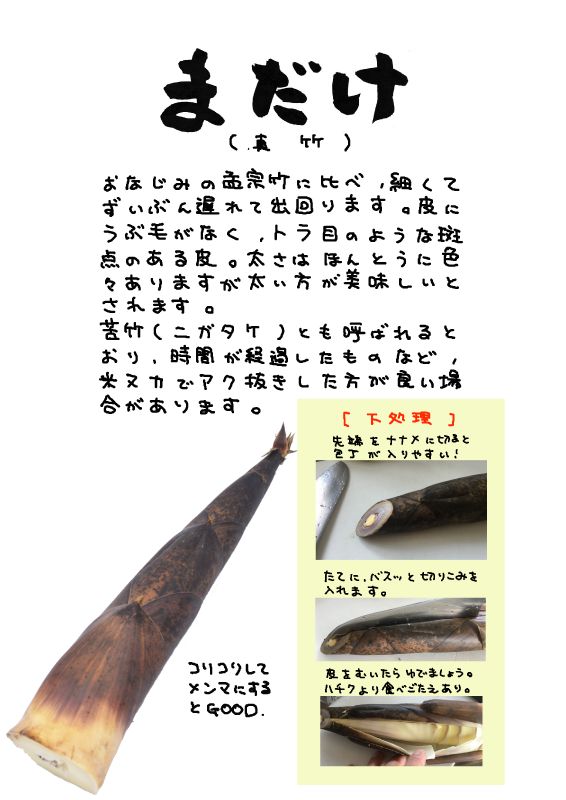 まだけ
(真 竹)
おなじみの孟宗竹に比べ,細くて
ずいぶん遅れて出回ります。皮に
うぶ毛がなく,トラ目のような斑
点のある皮。太さは ほんとうに色
々ありますが太い方が美味しいと
されます。
苦竹(ニガタケ )とも呼ばれると
おり,時間が経過したものなど,
米ヌカでアク抜きした方が良い場
合があります。
[ 下処理 ]
先端をナナメに切ると
包丁が入りやすい!
たてに,バスッと切りこみを
入れます。
皮をむいたらゆでましょう。
ハチクより食べごたえあり。
コリコリして
メンマにする
とGOOD.